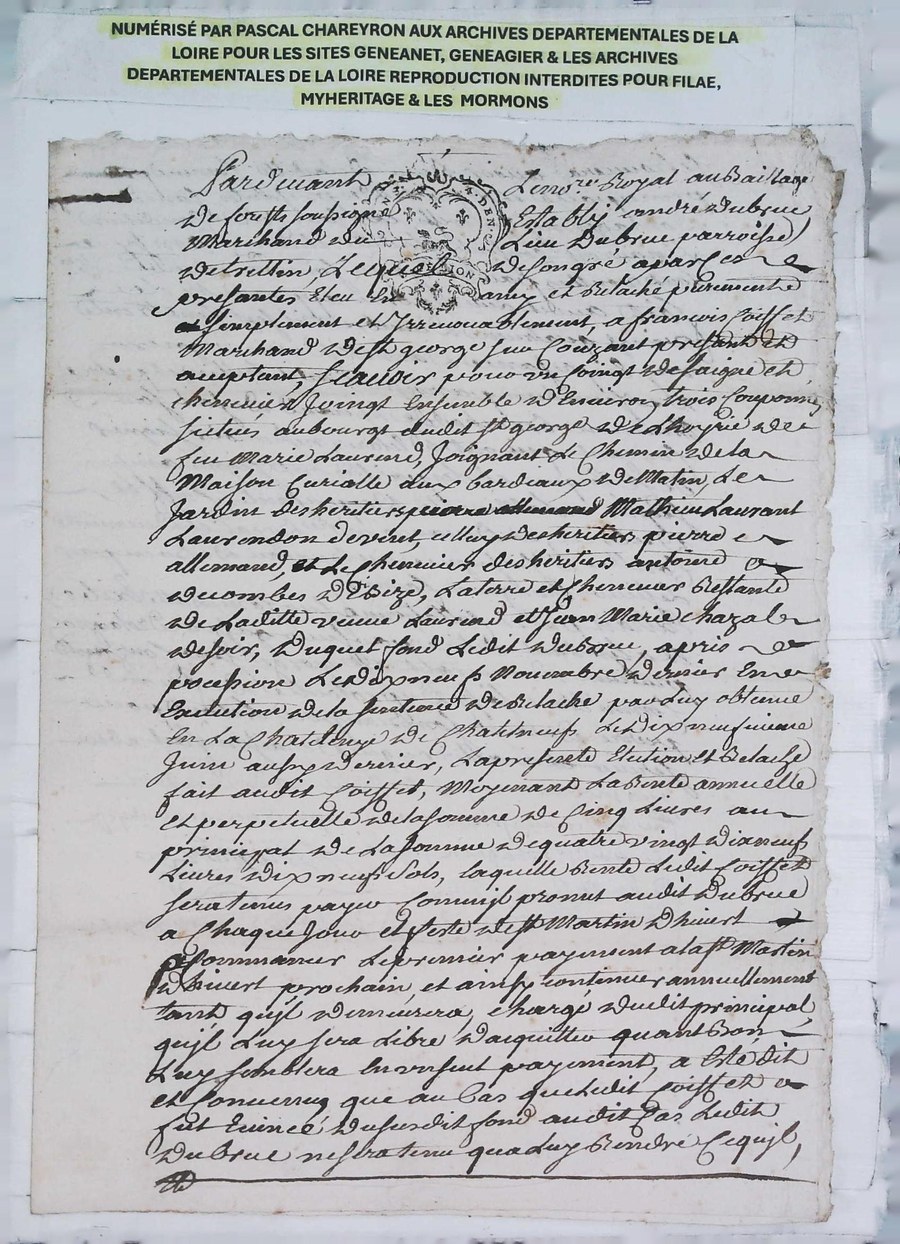 NUMÉRISÉ PAR PASCAL CHAREYRON AUX ARCHIVES DEPARTEMENTALES DE LA
LOIRE POUR LES SITES GENEANET, GENEAGIER & LES ARCHIVES
DEPARTEMENTALES DE LA LOIRE REPRODUCTION INTERDITES POUR FILAE,
MYHERITAGE & LES MORMONS
Pardevant Le no.re Royal au Bailliage
de forests soussigné Establi andré dubrue
Marchand du Lieu Dubrue parroisse
de trettin, Lequel de son gré a par ces
presantes et Relaché purement
et simplement et Irrevocablement, a francois Coiffet
Marchand de st george sur Couzant presant et
acceptant, scavoir pour un soingt de saigne et
chenevier Joingt Ensemble d'Environ trois Couponné
situés au bourgt dudit st george de de
feu Marie Laurend, Joignant Le Chemin de la
Maison Curialle aux bardeaux de Matin, Le
Jardin des heritiers Mathieu Laurant
Laurendon devent, celluy des heritiers pierre
allemand, et Le chenevier des heritiers antoine
decombes de bize, La terre et chenevier Restante
de Laditte veuve Laurend et Jean Marie chazal
de soir, duquel fond Ledit dubrue, a pris
pocession Le dix neuf Novembre dernier En
Execution de la sentence de Relache par Luy obtenue
En La Chatelenye de Chatelneuf Le dix neufvieme
Juin aussy dernier, La presente Etution et Relache
fait audit Coiffet, Moyenant La Rente annuelle
et perpetuelle de la somme de Cinq Livres au
principal de La somme de quatre vingt dixneuf
Livres dix neuf sols, laquelle Rente Ledit Coiffet
sera tenu payer Comme il promet audit dubrue
a Chaque Jour et feste de st Martin d'hivert
Commancer Le premier payement a la st Martin
d'hivert prochain, et ainsy continuer annuellement
tant quil demeurera, chargé dudit principal
quil Luy sera Libre d'aquitter quant Bon
Luy semblera En un seul payement, a Esté dit
et Convenu que au Cas que Ledit Coiffet
fut Evincé du susdit fond audit Cas Ledit
dubrue ne sera tenu qua Luy Rendre Ce quil